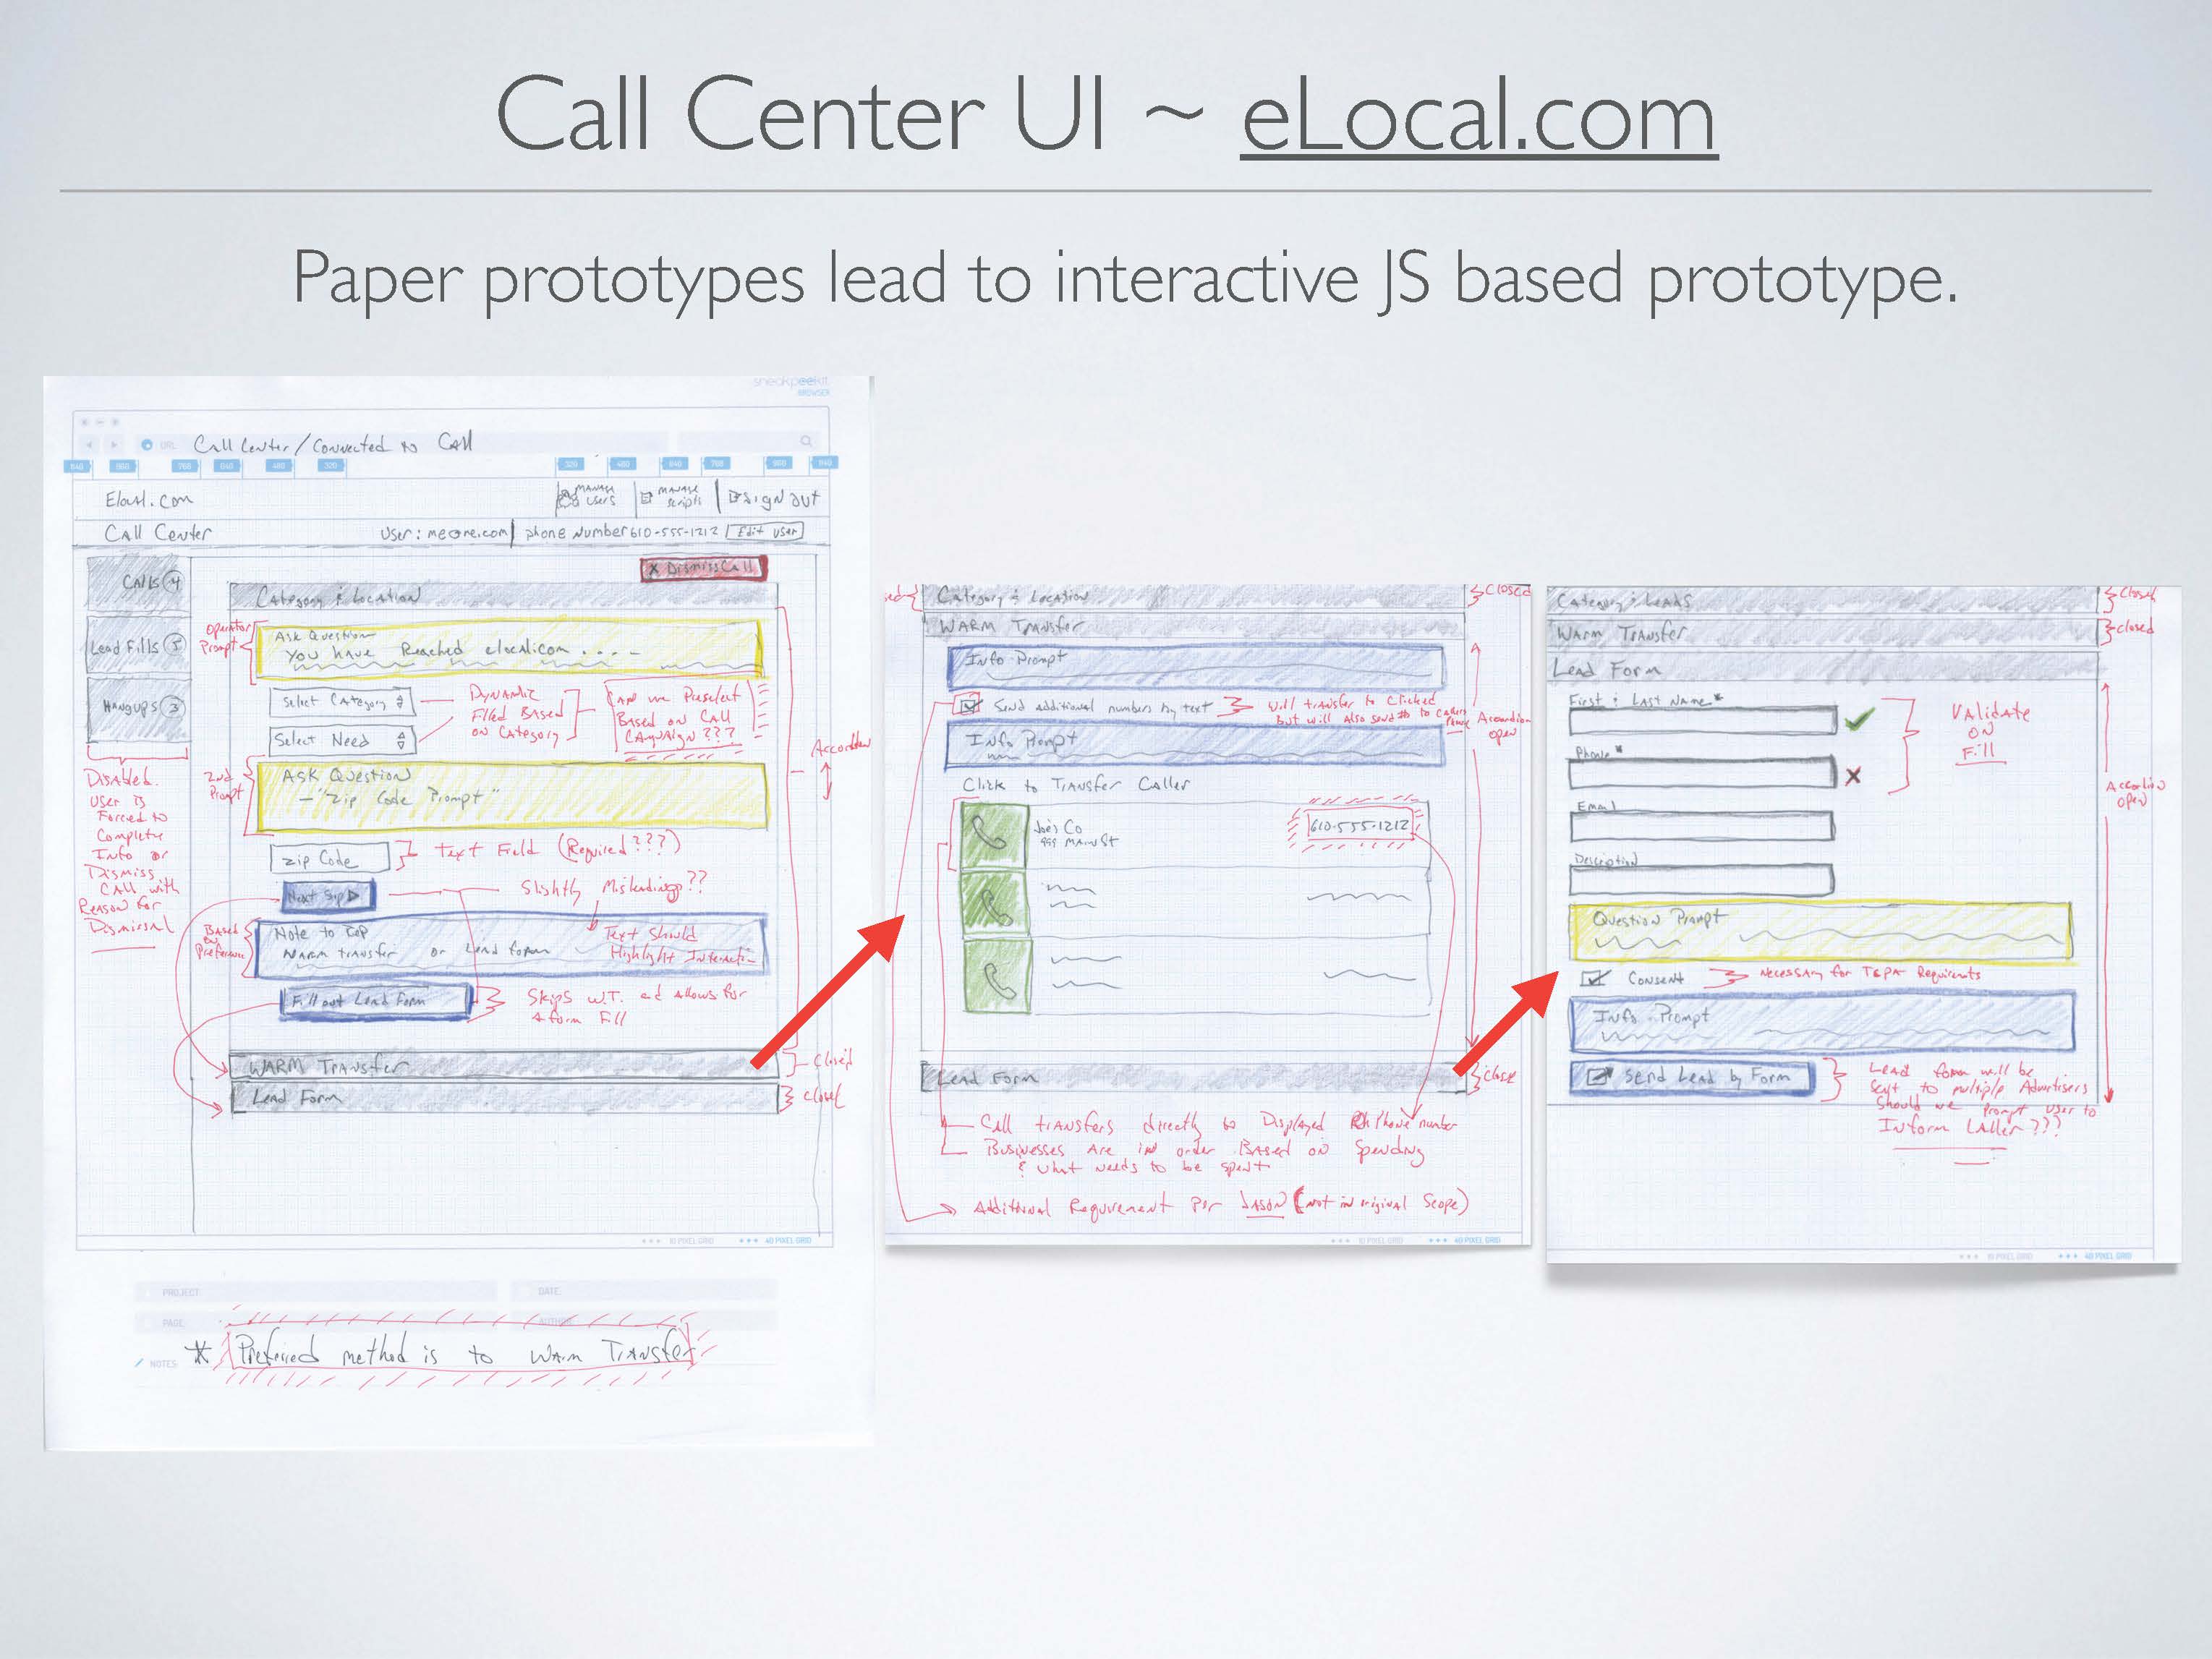 Call Center UI ~ eLocal.com
Paper prototypes lead to interactive JS based prototype.
sneakpeekit
BROWSER
URL: Call Center / Connected to Call
840 960 768 640 480 320 320 480 640 768 960 840
Elocal.com
Manage Users
Manage Scripts
Sign out
Call Center
User: me@me.com
phone number 610-555-1212
Edit User
Calls 4
Lead Fills 5
Hangups 3
X Dismiss Call
Category & Location
Operator Prompt
Ask Question
You have Reached elocal.com ....
Select Category
Select Need
Dynamic
Filled Based
on Category
Can we Preselect
Based on Call
Campaign ???
Accordion
2nd Prompt
Ask Question
- "Zip Code Prompt"
Zip Code
Text Field (Required???)
Disabled.
User is
Forced to
Complete
Info or
Dismiss
Call with
Reason for
Dismissal
Next Step
Slightly Misleading??
Based on Preference
Note to CSP
Warm transfer or Lead form
Text should
Highlight Interaction
Fill out Lead Form
Skips W.T. and allows for
a form Fill
Warm Transfer
Closed
Lead Form
Closed
10 PIXEL GRID
40 PIXEL GRID
PROJECT:
DATE:
PAGE:
AUTHOR:
NOTES:
* Preferred method is to Warm Transfer
Category & Location
Closed
Warm Transfer
Info Prompt
Send additional numbers by text
Will transfer to Clicked
but will also send #s to Callers Phone
Accordion
open
Info Prompt
Click to Transfer Caller
Joe's Co
999 Main St
610-555-1212
Lead Form
Close
Call transfers directly to Displayed Phone number
Businesses are in order Based on Spending
& what needs to be spent
Additional Requirement per Jason (not in original Scope)
10 PIXEL GRID
40 PIXEL GRID
Category & Leads
Closed
Warm Transfer
Closed
Lead Form
First & Last Name*
Validate
on
Fill
Phone*
Accordion
open
Email
Description
Question Prompt
Consent
Necessary for TCPA Requirements
Info Prompt
Send Lead by Form
Lead form will be
sent to multiple Advertisers
Should we Prompt User to
Inform Caller???
10 PIXEL GRID
40 PIXEL GRID